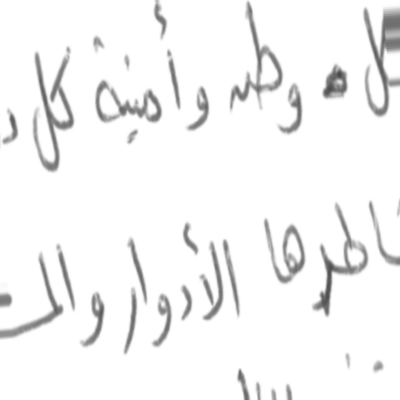 كل وطن وأمنية كل
شاطرها الأدوار والمـ